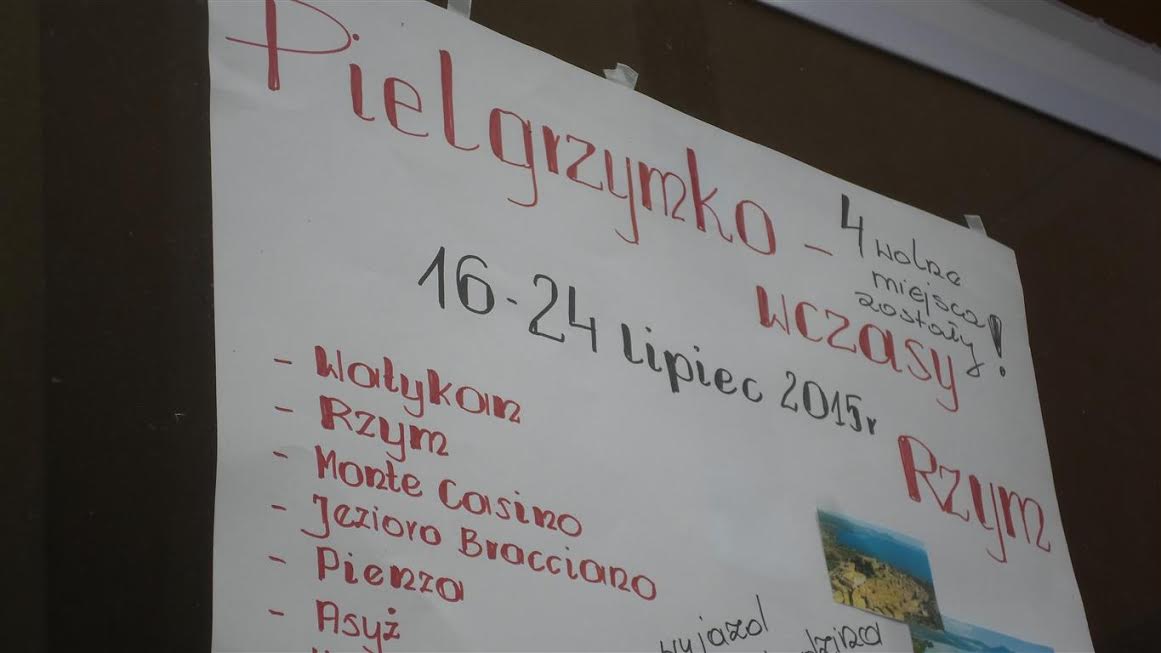 Pielgrzymko -
wczasy
4 wolne
miejsca
zostały!
16-24 lipiec 2015r
Rzym
- Watykan
- Rzym
- Monte Casino
- Jezioro Bracciano
- Pienza
- Asyż
wyjazd